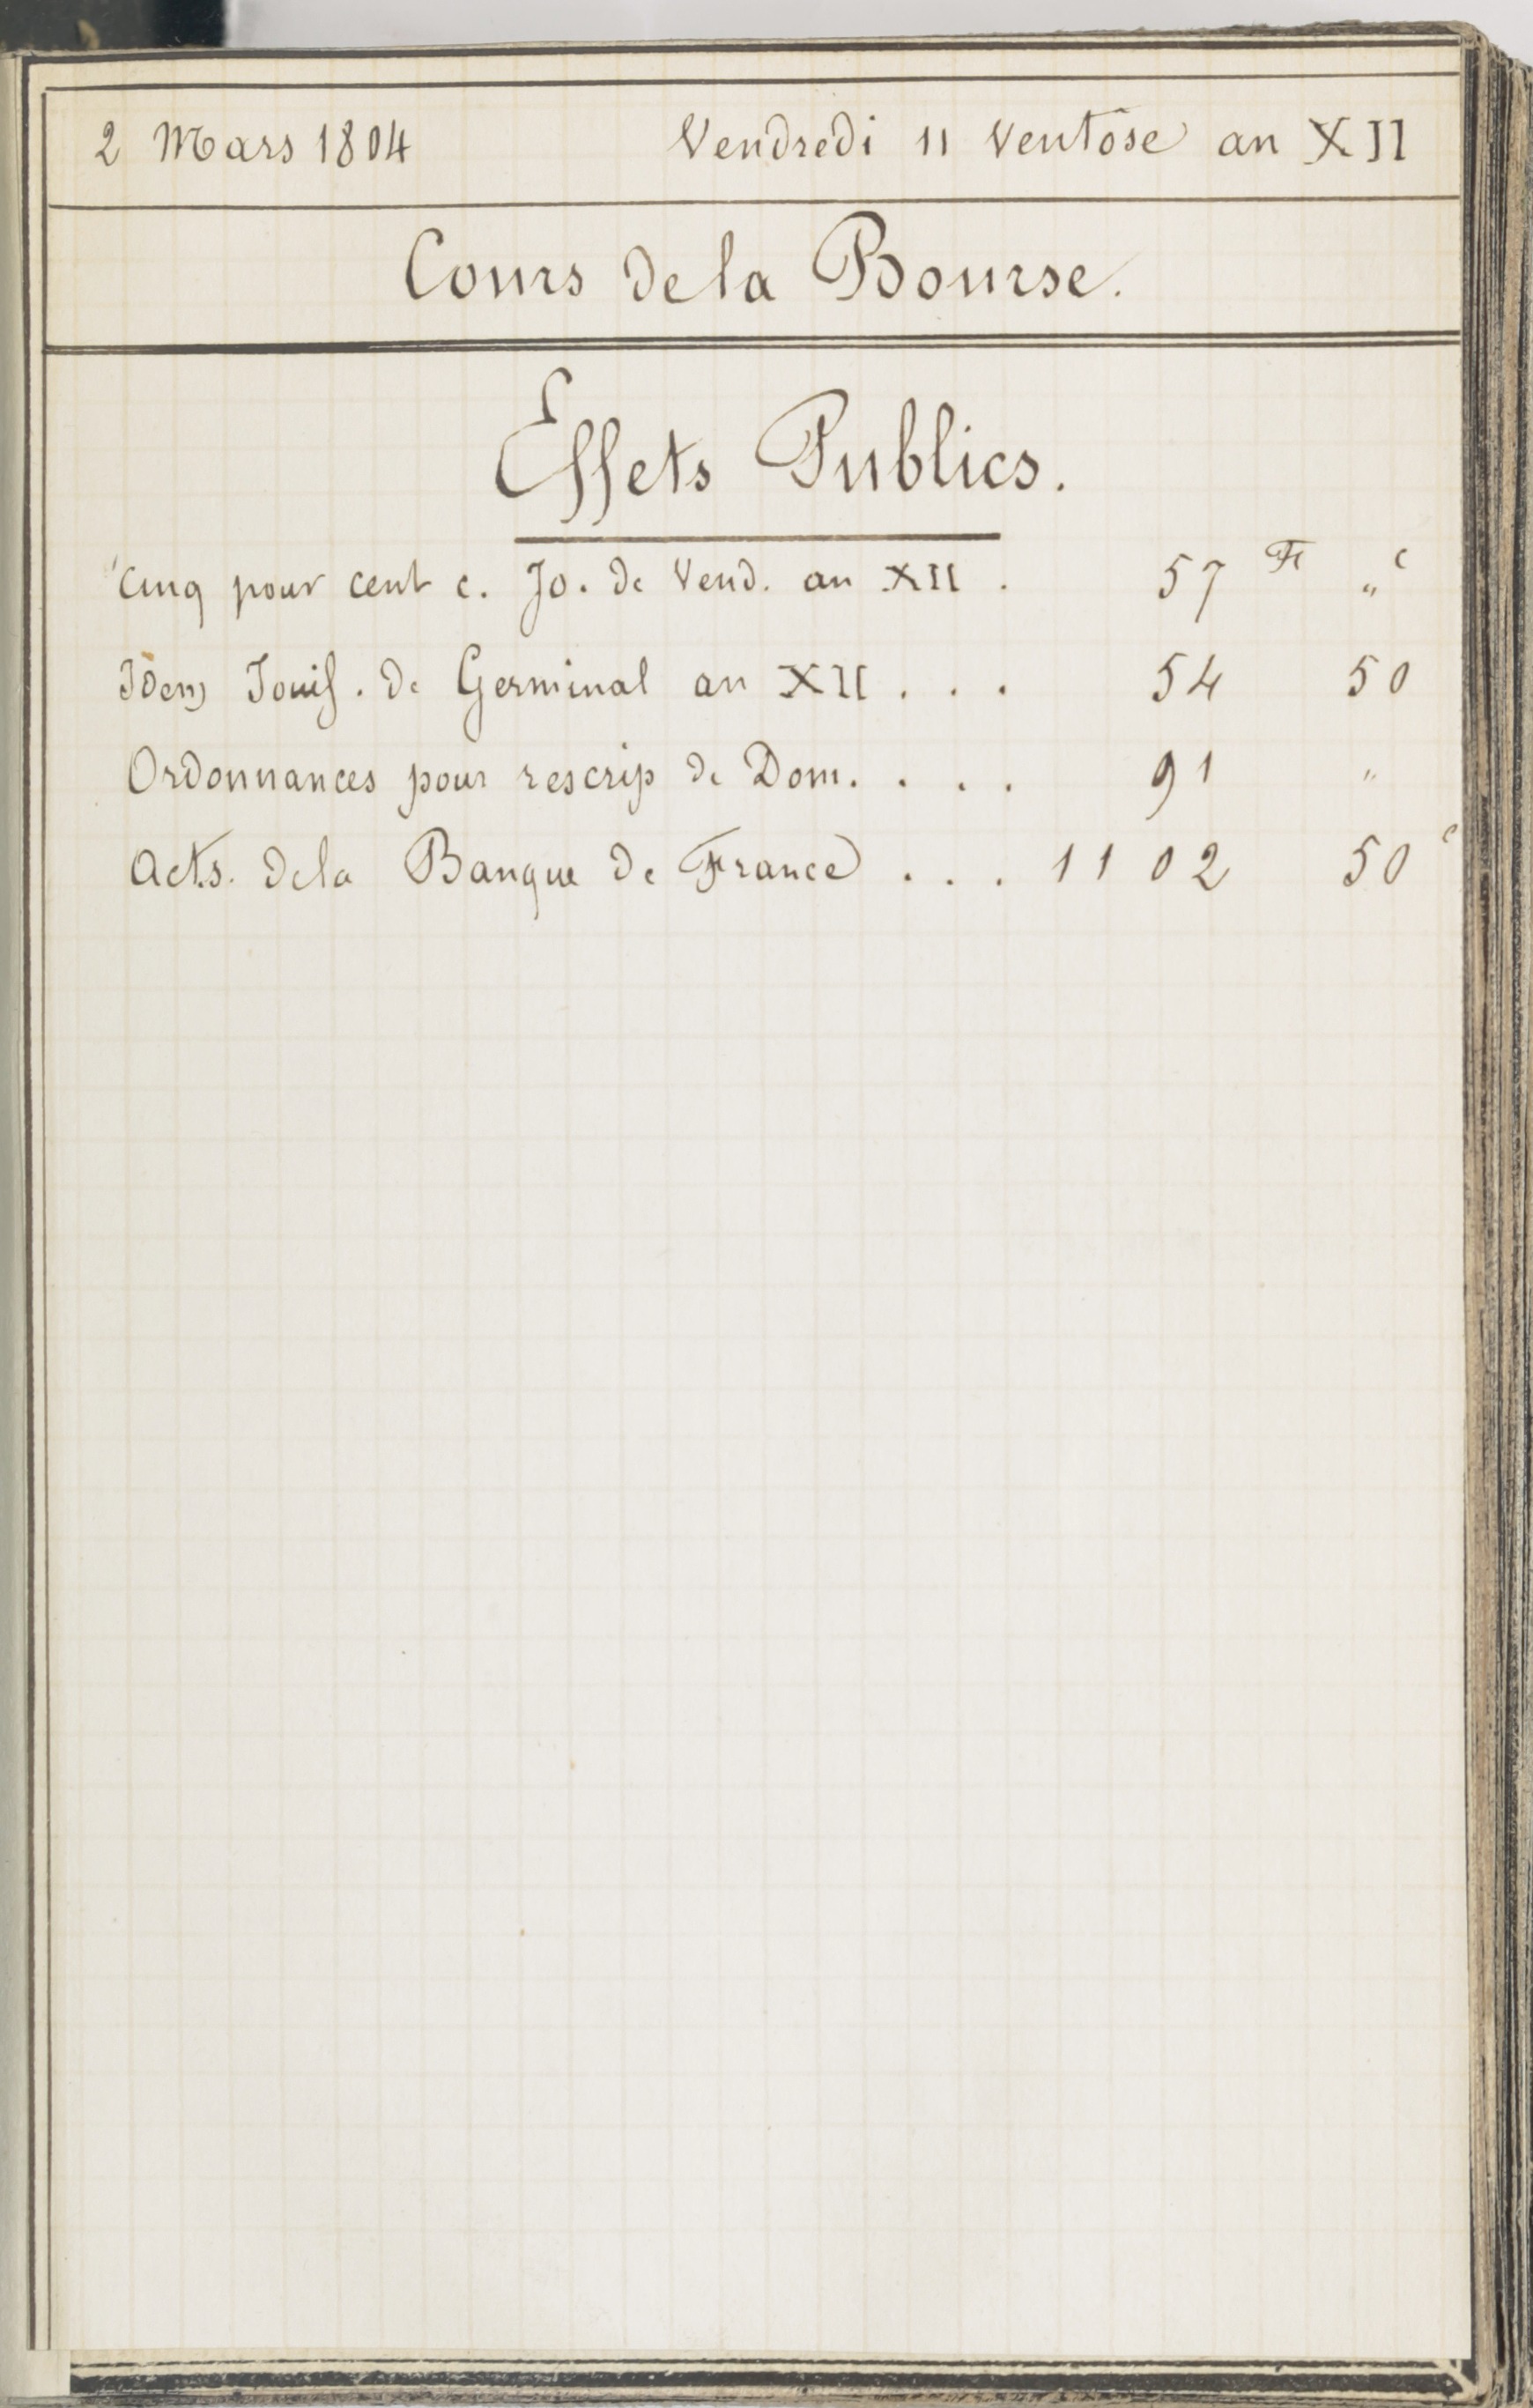 2 Mars 1804 Vendredi 11 Ventôse an XII
Cours de la Bourse.
Effets Publics.
Cinq pour cent c. Jo. de Vend. an XII . 57 Fr „ c
Idem Jouis. de Germinal an XII . . . 54 50
Ordonnances pour rescrip de Dom. . . . 91 „
Acts. de la Banque de France . . . 1102 50 c